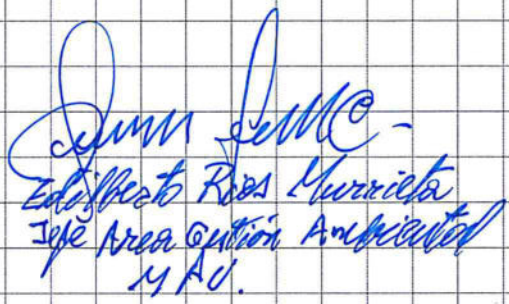 Edilberto Rios Murrieta
Jefe Area Gestión Ambiental
y AV.